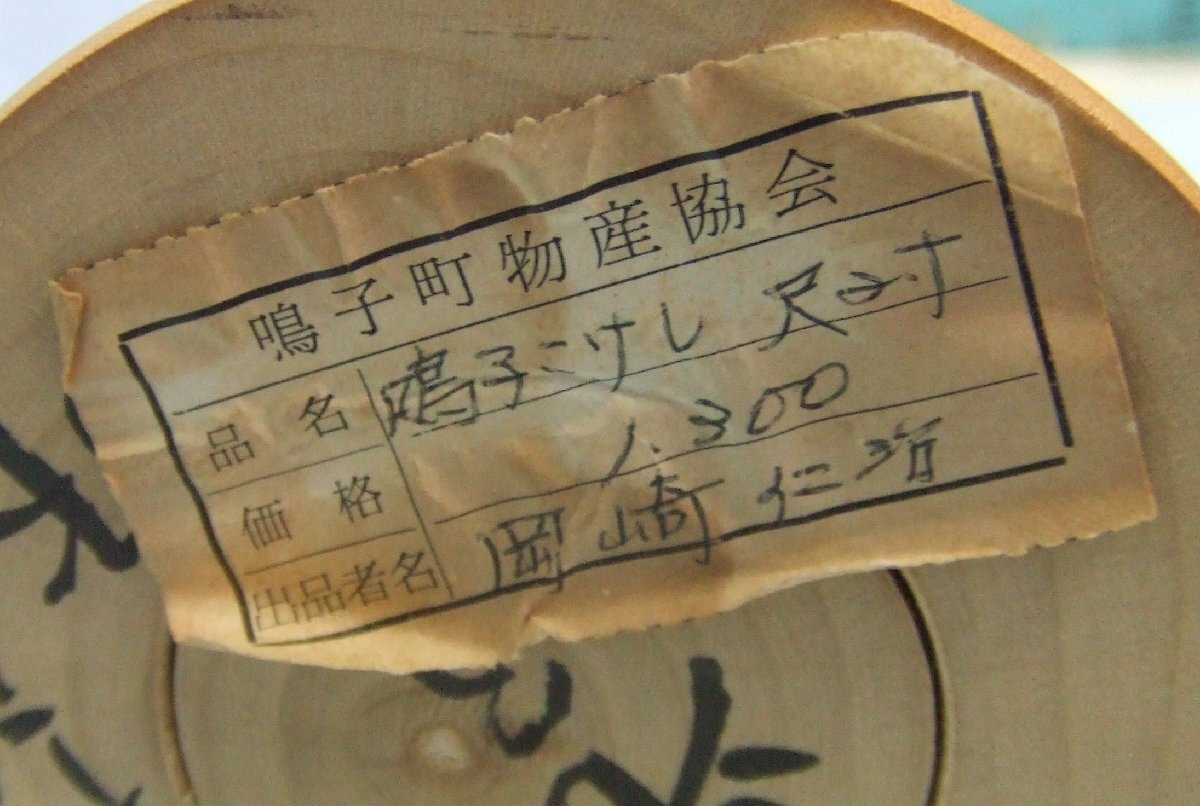 鳴子町物産協会
品名 鳴子こけし 尺2寸
価格 1.300
出品者名 岡崎仁治